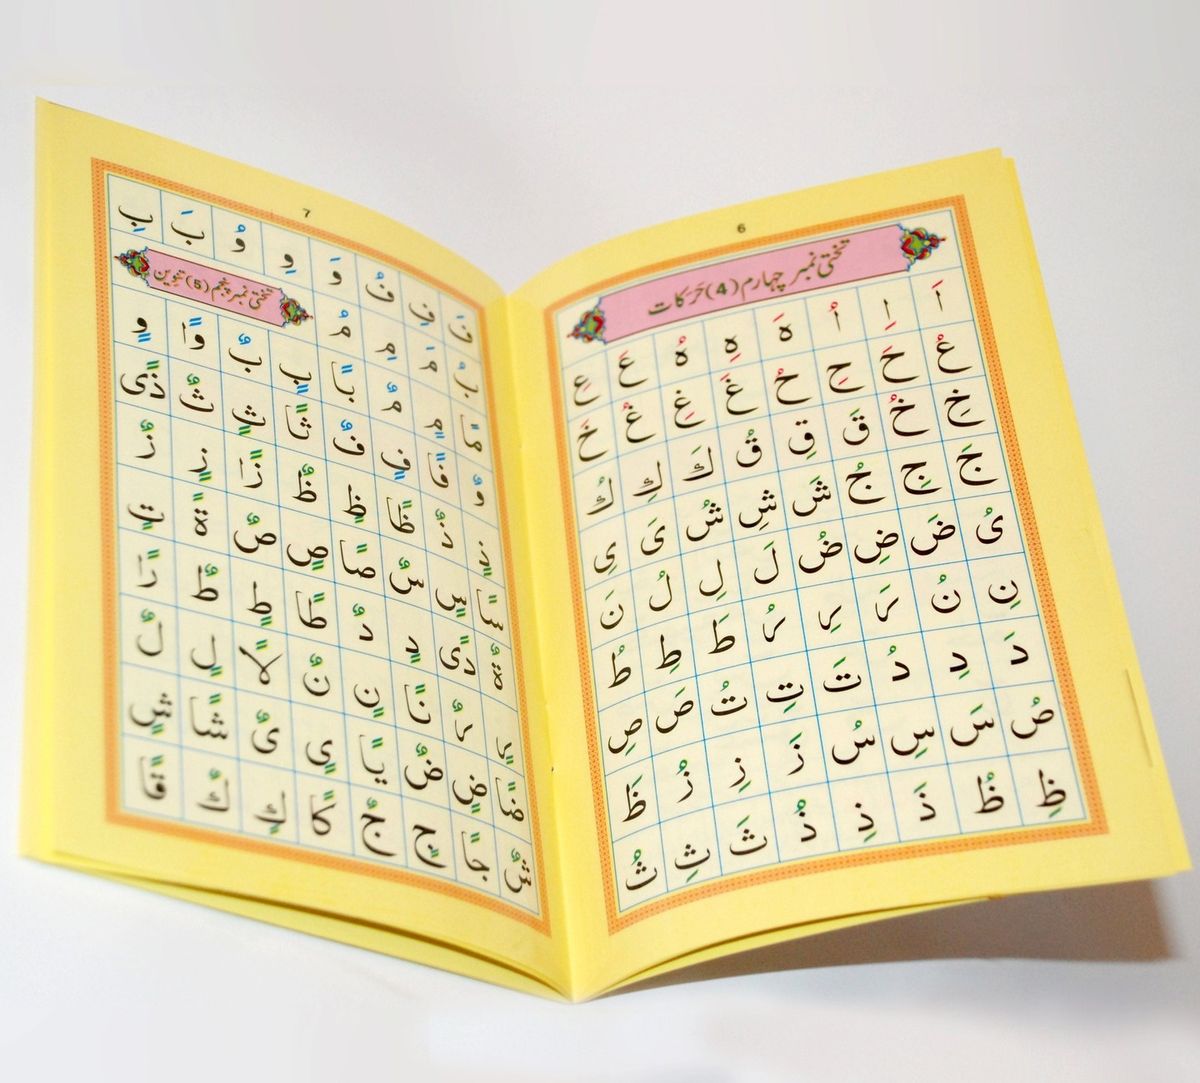 6
تختی نمبر چہارم(4) حَرَکات
اَ اِ اُ هَ هِ هُ عَ عِ
عُ حَ حِ حُ غَ غِ غُ خَ
خِ خُ قَ قِ قُ كَ كِ كُ
جَ جِ جُ شَ شِ شُ یَ یِ
یُ ضَ ضِ ضُ لَ لِ لُ نَ
نِ نُ رَ رِ رُ طَ طِ طُ
دَ دِ دُ تَ تِ تُ صَ صِ
صُ سَ سِ سُ زَ زِ زُ ظَ
ظِ ظُ ذَ ذِ ذُ ثَ ثِ ثُ
7
فَ فِ فُ وَ وِ وُ بَ بِ
بُ مَ مِ مُ
تختی نمبر پنجم(5) تنوین
مًا مٍ مٌ بًا بٍ بٌ وًا وٍ
وٌ فًا فٍ فٌ ثًا ثٍ ثٌ ذًی
ذٍ ذٌ ظًا ظٍ ظٌ زًا زٍ زٌ
سًا سٍ سٌ صًا صٍ صٌ ةً تٍ
ةٌ دًی دٍ دٌ طًا طٍ طٌ رًا
رٍ رٌ نًا نٍ نٌ لًا لٍ لٌ
ضًا ضٍ ضٌ یًا یٍ یٌ شًا شٍ
شٌ جًا جٍ جٌ كًا كٍ كٌ قًا